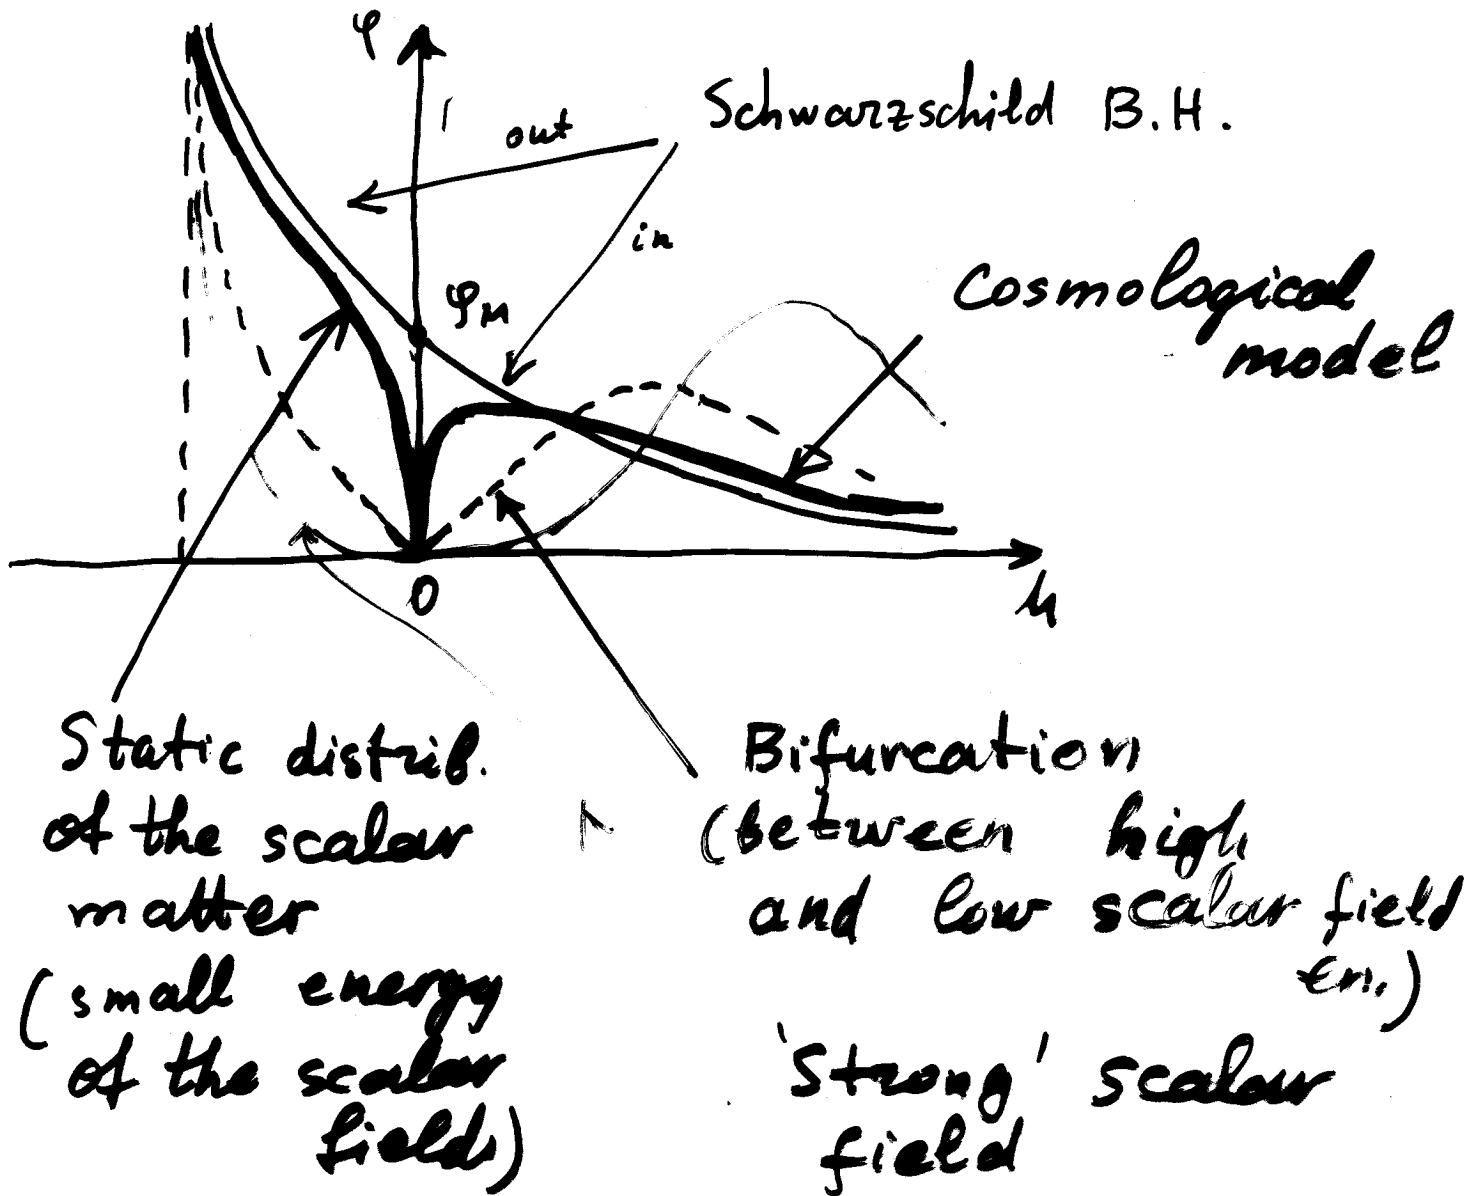 φ
Schwarzschild B.H.
out
in
φ
Cosmological
model
0
h
Static distrib.
of the scalar
matter
(small energy
of the scalar
field)
Bifurcation
(between high
and low scalar field
En.)
'Strong' scalar
field